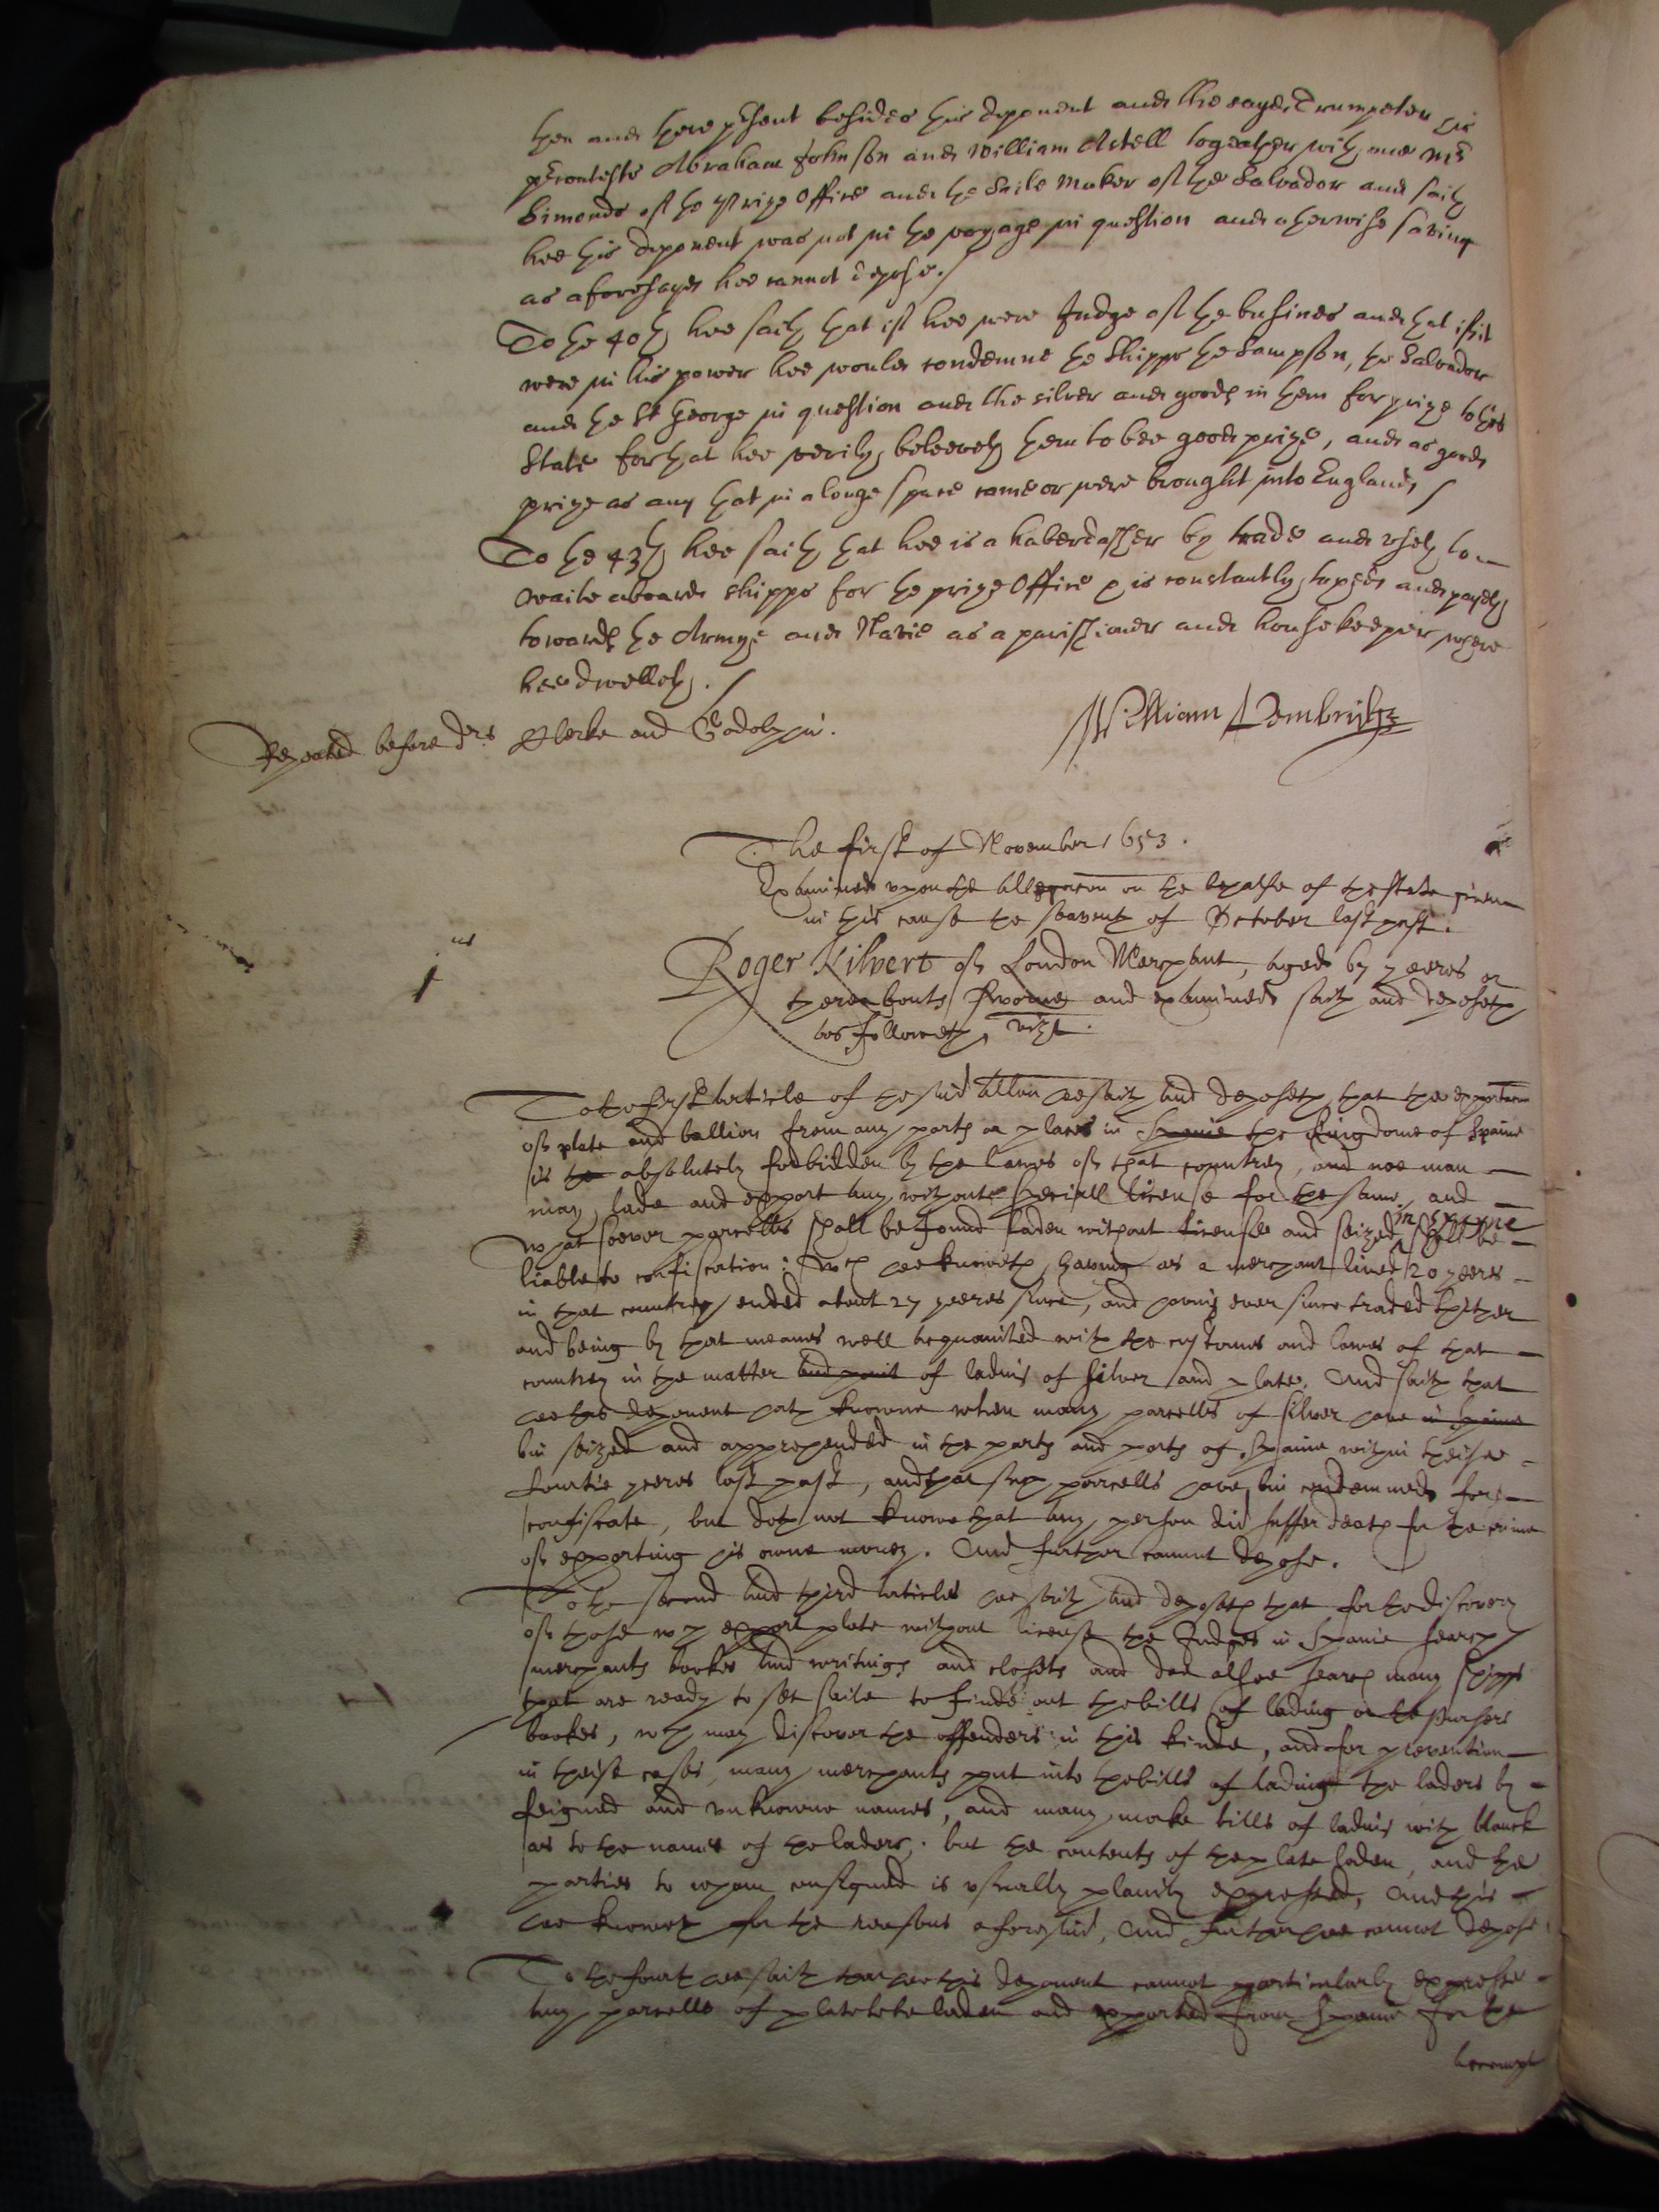 then and there present besides this deponent and the sayd Trumpeter his
Contests Abraham Johnson and William Astell together with one Mr
Simonds of the Prize Office and the Saile Maker of the Salvador and saith
hee this deponent was not in the voyage in question and otherwise saving
as aforesayd hee cannot depose./
To the 40th hee saith that if hee were Judge of the busines and that if it
were in his power hee would condemne the Shipps the Sampson, the Salvador
and the St George in question and the silver and goods in them for prize to this
State for that hee verily beleeveth them to bee good prize, and as good
prize as any that in a longe space came or were brought into England /
To the 43th hee saith that hee is a haberdassher by trade and useth to
waite aboard shipps for the prize Office & is constantly taxed and payeth
towards the Armye and Navie as a parisshioner and housekeeper where
hee dwelleth./
Repeated before drs Clerke and Godolphin.
William
The first of November 1653.
Examined upon the allegation on the behalfe of the state given
in this cause the seaventh of October last past.
1us
Roger Kilvert of London Merchant, aged 67 yeeres or
thereabouts sworne and examined saith and deposeth
as followeth, vizt.
To the first article of the said allon hee saith and deposeth that the exportacon
of plate and bullion from any ports or places in Spaine the Kingdome of Spaine
is the absolutely forbidden by the lawes of that countrey, and noe man
may lade and export any without speciall license for the same, and
whatsoever parcells shall be found laden without license and seized shall be
liable to confiscation: Wch hee knoweth having as a merchant lived in Spayne 20 yeeres
in that countrey ended about 27 yeeres since, and having ever since traded thither
and being by that meanes well acquainted with the customes and lawes of that
countrey in the matter and point of lading of silver and plate. And saith that
hee this deponent hath knowne when many parcells of silver have in Spaine
bin seized and apprehended in the parts and ports of Spaine within theise
fourtie yeeres last past, and that such parcells have bin condemned for
confiscate, but doth not knowe that any person did suffer death for the crime
of exporting his owne money. And further cannot depose.
To the second and third articles hee saith and deposeth that for the discovery
of those wch export plate without license the Judges in Spaine search
merchants bookes and writings and closets and doe alsoe search many shipps
that are ready to set saile to finde out the bills of lading or the pursers
bookes, wch may discover the offenders in this kinde, and for prevention
in theise cases, many merchants put into the bills of lading the laders by
feigned and unknowne names, and many make bills of lading with blanck
as to the names of the laders; but the contents of the plate laden, and the
parties to whom consigned is usually plainly expressed, And this
hee knoweth for the reasons aforesaid, And further hee cannot depose.
To the fourth hee saith that hee this deponent cannot particularly expresse
any parcells of plate to be laden and exported from Spaine for the